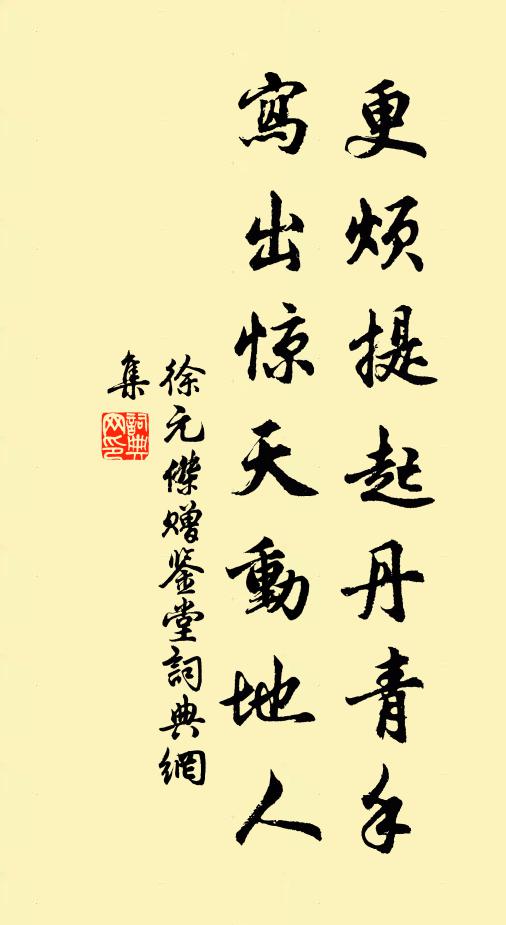 更烦提起丹青手
寫出惊天動地人
徐元傑赠鉴堂詞典網
集
詞典网印